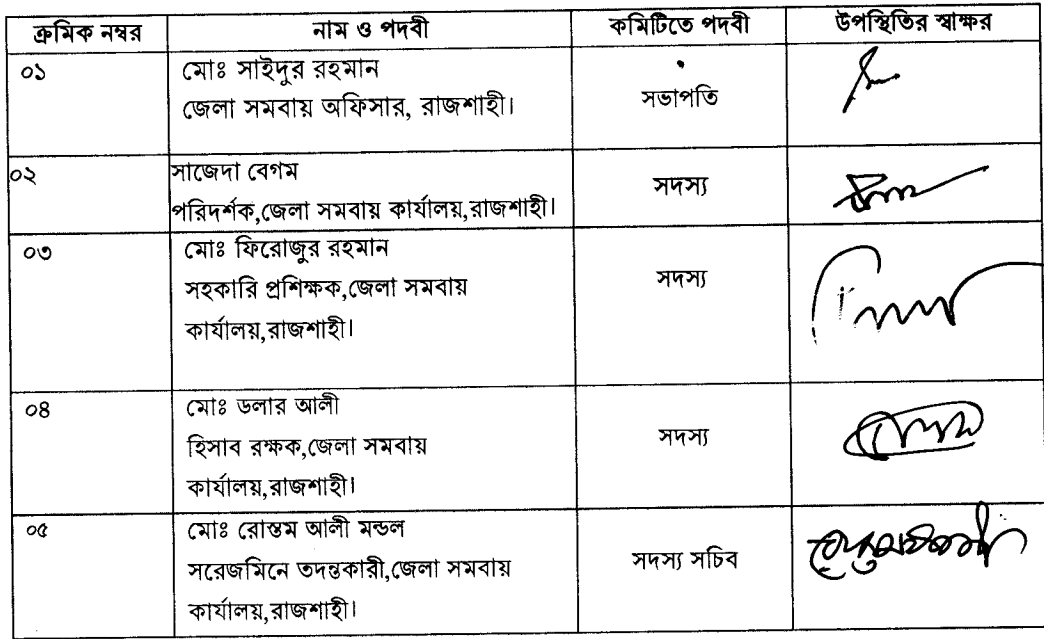 ক্রমিক নম্বর নাম ও পদবী কমিটিতে পদবী উপস্থিতির স্বাক্ষর
০১ মোঃ সাইদুর রহমান
জেলা সমবায় অফিসার, রাজশাহী। সভাপতি
০২ সাজেদা বেগম
পরিদর্শক,জেলা সমবায় কার্যালয়,রাজশাহী। সদস্য
০৩ মোঃ ফিরোজুর রহমান
সহকারি প্রশিক্ষক,জেলা সমবায় সদস্য
কার্যালয়,রাজশাহী।
০৪ মোঃ ডলার আলী
হিসাব রক্ষক,জেলা সমবায় সদস্য
কার্যালয়,রাজশাহী।
০৫ মোঃ রোস্তম আলী মন্ডল
সরেজমিনে তদন্তকারী,জেলা সমবায় সদস্য সচিব
কার্যালয়,রাজশাহী।